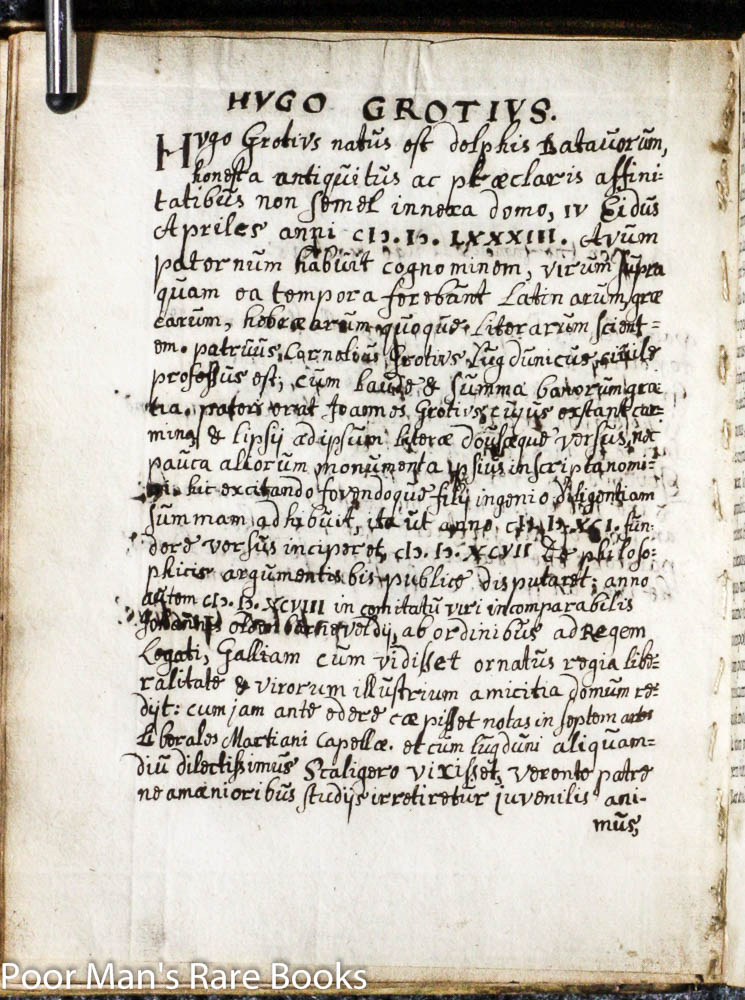 HVGO GROTIVS.
Hugo Grotivs natus est delphis Batauorum,
honesta antiquitus ac præclaris affini:
tatibus non semel innexa domo, IV Eidus
Apriles anni CIↃ.IↃ. LXXXIII. Avum
paternum habuit cognominem, virum supra
quam ea tempora ferebant Latinarum, græ
carum, hebræarum quoque Literarum scient=
em. patruus, Cornelius Grotivs, Lugduni cus, ciuile
professus est, cum laude & summa gra
tia. pater erat Joannes Grotivs, cujus exstant car
mina & lipsij ad ipsum literæ dousæque versus, nec
pauca aliorum monumenta ipsius inscripta nomi:
ni. hic excitando fovendoque filij ingenio diligentiam
summam adhibuit, ita ut anno CIↃ.IↃ.XCI. fun-
dere versus inciperet, CIↃ.IↃ.XCVII de philoso:
phicis argumentis bis publice disputaret; anno
autem CIↃ.IↃ.XCVIII in comitatu viri incomparabilis
Johannis olden barneveldij, ab ordinibus ad Regem
Legati, Galliam cum vidisset ornatus regia libe:
ralitate & virorum illustrium amicitia domum re:
dijt: cum jam ante edere cæpisset notas in septem artes
Liberales Martiani Capellæ. et cum lugduni aliquam=
diu dilectissimus Scaligero vixisset, verente patre
ne amænioribus studijs irretiretur juvenilis ani-
mus,
Poor Man's Rare Books